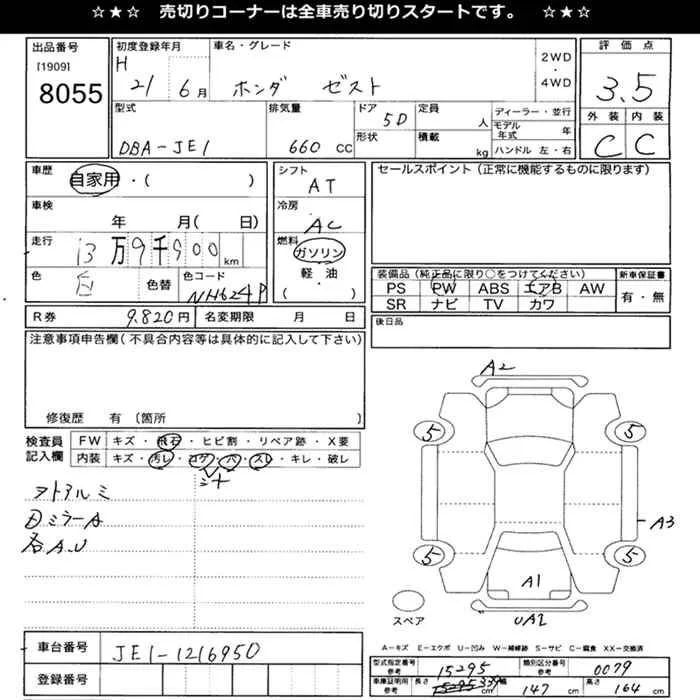 ☆ ★ ☆ 売切りコーナーは全車売り切りスタートです。 ☆ ★ ☆
出品番号
[1909]
8055
初度登録年月
H
21 6月
車名・グレード
ホンダ ゼスト
2WD
・
4WD
評価点
3.5
外装 内装
C C
型式
DBA-JE1
排気量
660 CC
ドア 5D
形状
定員 人
積載 kg
ディーラー・並行
モデル年式 年
ハンドル 左・右
車歴
自家用・( )
車検
年 月( 日)
走行
13万9千900km
色
色替
色コード
NH624P
シフト
AT
冷房
AC
燃料
ガソリン
軽・油
( )
セールスポイント(正常に機能するものに限ります)
装備品(純正品に限り○をつけてください)
PS PW ABS エアB AW
SR ナビ TV カワ
新車保証書
有・無
R券 9.820円 名変期限 月 日
後日品
注意事項申告欄(不具合内容等は具体的に記入して下さい)
修復歴 有(箇所 )
検査員
記入欄
FW キズ・飛石・ヒビ割・リペア跡・X要
内装 キズ・汚レ・コゲ・穴・スレ・キレ・破レ
シート
ヲトアルミ
ミラーA
各A.U
A2
5 5
A3
5 5
A1
UA2
スペア
A=キズ E=エクボ U=凹み W=補修跡 S=サビ C=腐食 XX=交換済
車台番号 JE1-1216950
登録番号
型式指定番号 参考 15295 類別区分番号 参考 0079
車庫証明用 参考 長さ 339cm 幅 147cm 高さ 164cm